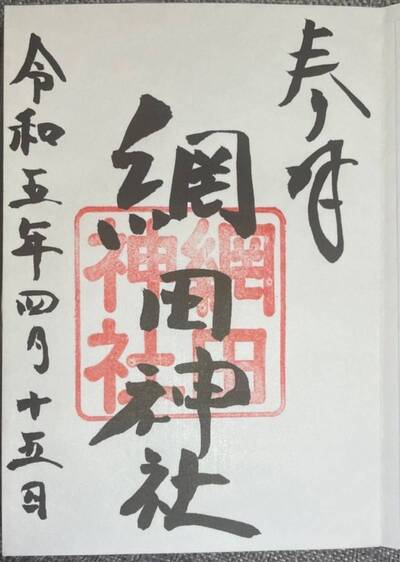 奉拝
網田神社
網田
神社
令和五年四月十五日